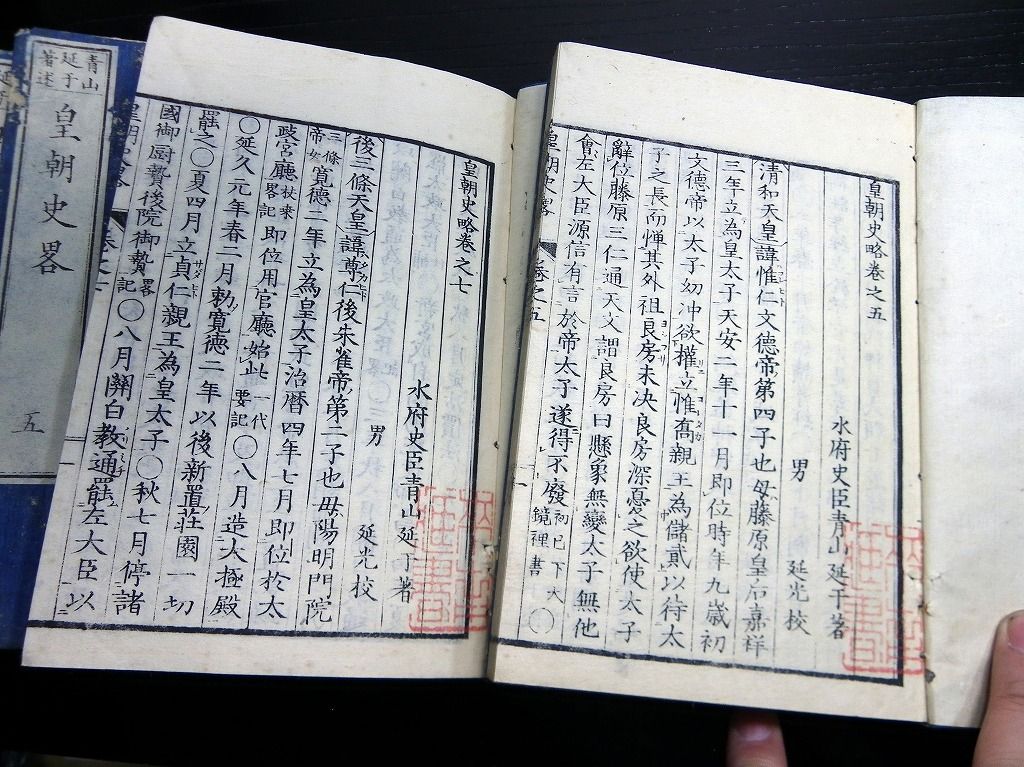 皇朝史略卷之五
水府史臣青山延于著
男 延光校
清和天皇諱惟仁文德帝第四子也母藤原皇后嘉祥
三年立為皇太子天安二年十一月即位時年九歲初
文德帝以太子幼冲欲權立惟喬親王為儲貳以待太
子之長而憚其外祖良房未决良房深憂之欲使太子
辭位藤原三仁通天文謂良房曰懸象無變太子無他
會左大臣源信有言於帝太子遂得不廢初已下大鏡裡書〇
皇朝史畧 卷之五
皇朝史略卷之七
水府史臣青山延于著
男 延光校
後三條天皇諱尊仁後朱雀帝第二子也母陽明門院
三條帝女寬德二年立為皇太子治暦四年七月即位於太
政官廳扶桒畧記即位用官廳始此一代要記〇八月造大極殿
〇延久元年春二月勅寬德二年以後新置莊園一切
罷之〇夏四月立貞仁親王為皇太子〇秋七月停諸
國御厨贄後院御贄畧記〇八月關白教通罷左大臣以
皇朝史畧 卷之七
青山延于著述
皇朝史畧
五